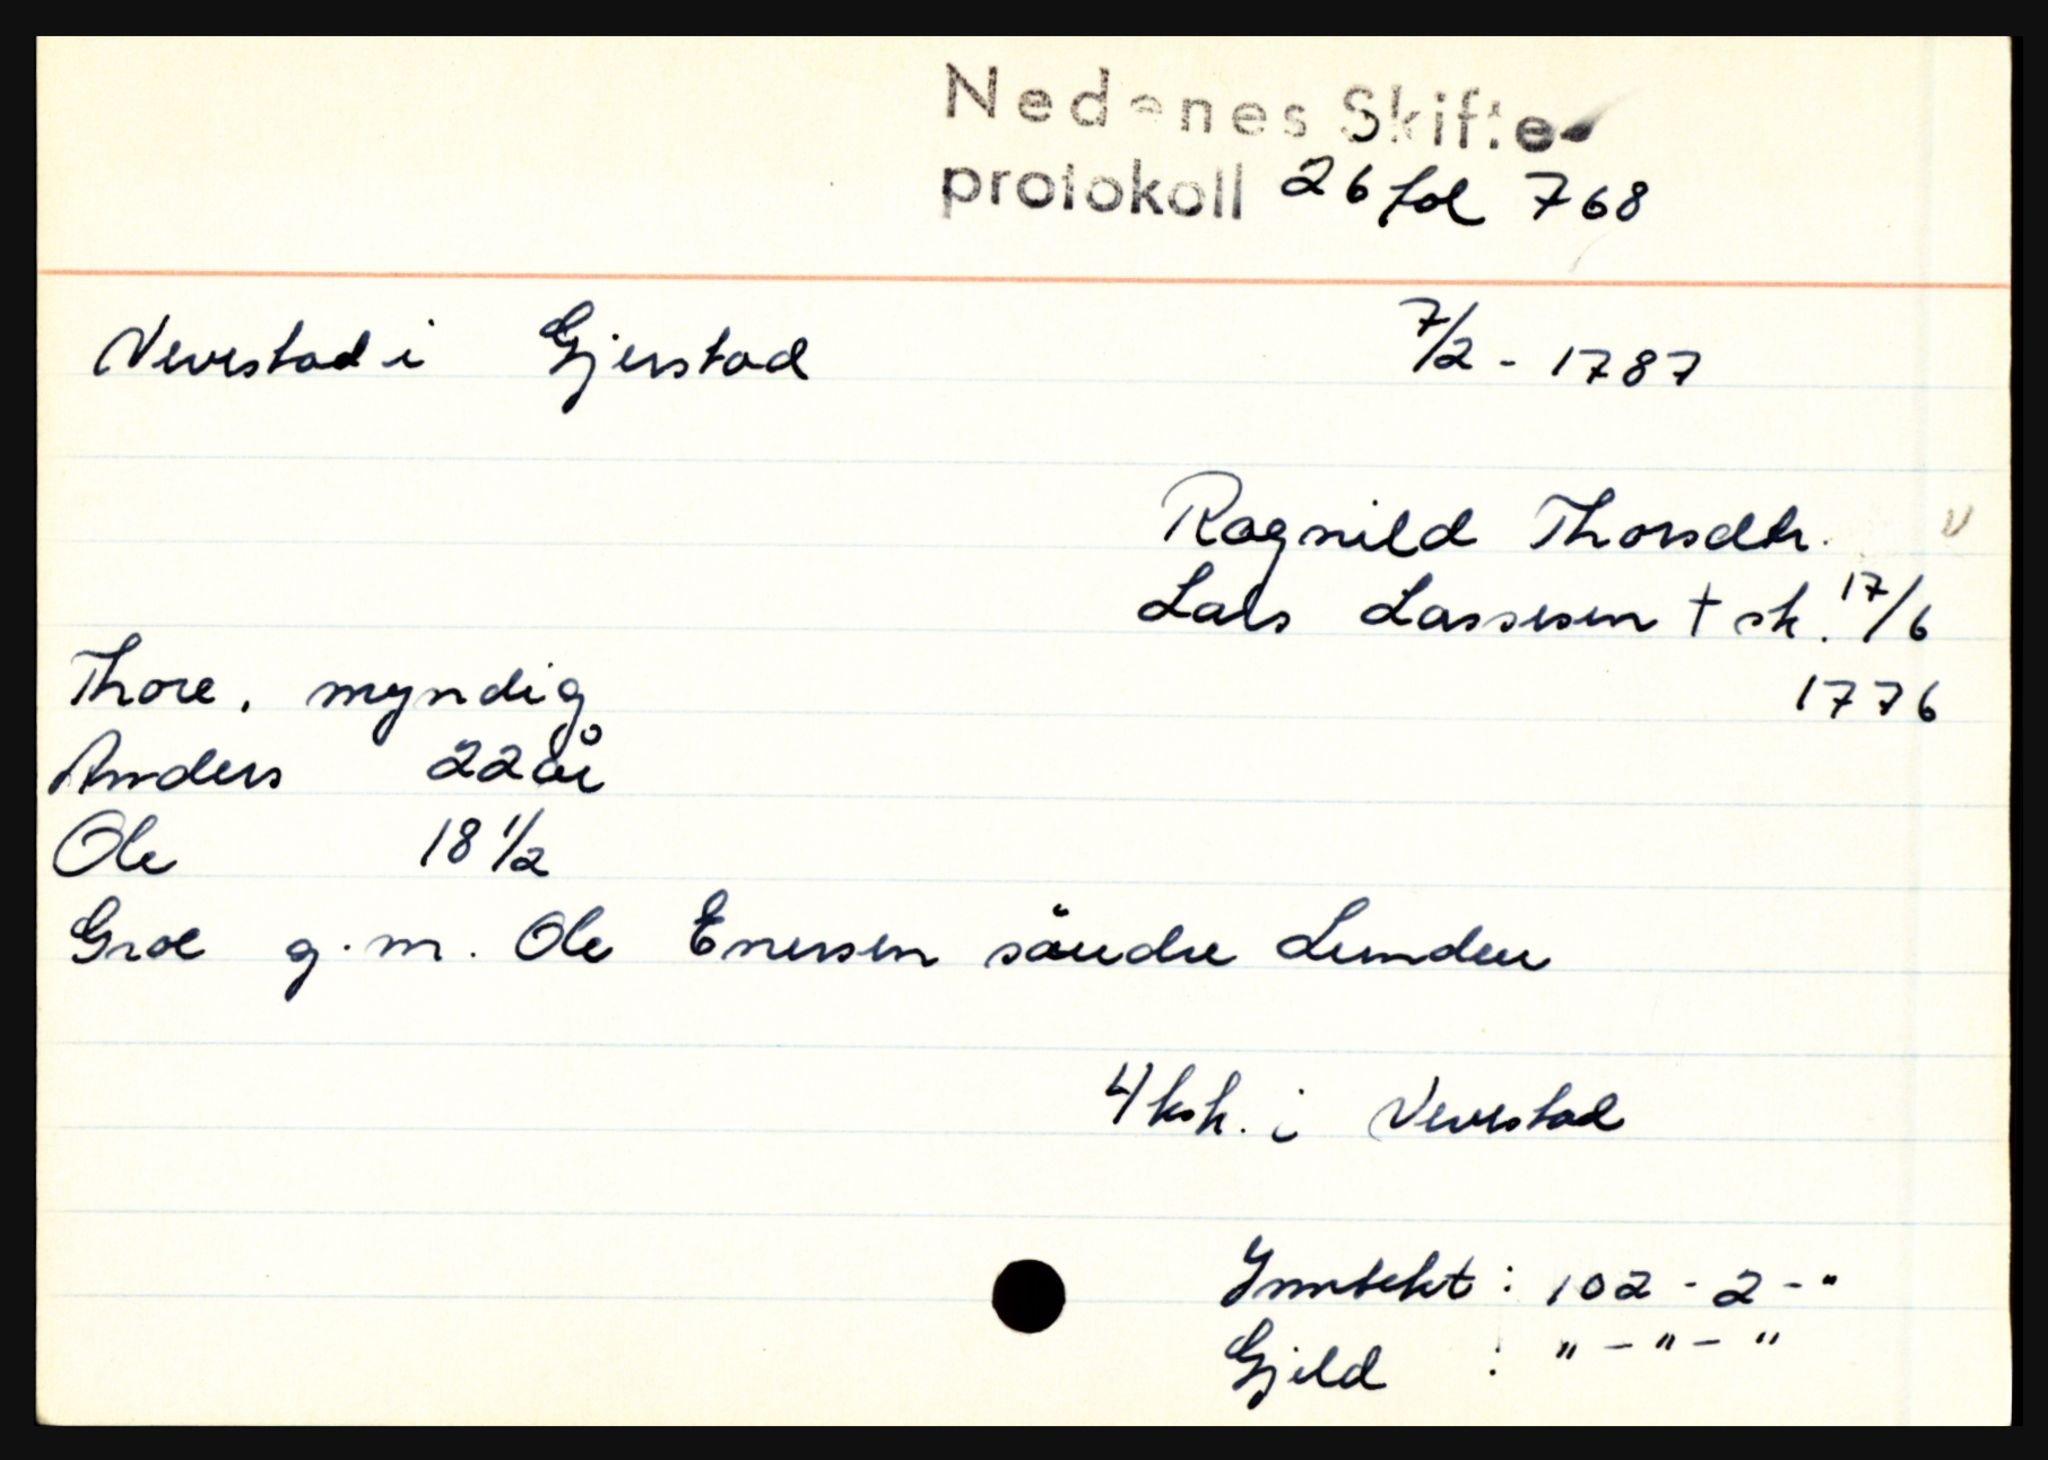 Nedenes Skifte-
protokoll 26 fol 768
Vevestad i Gjerstad 7/2 - 1787
Ragnild Thorsdtr.
Lars Lassesen † sk. 17/6
1776
Thore, myndig
Anders 22 år
Ole 18 1/2
Groe g.m. Ole Enersen söndre Lunden
4 ksk. i Vevestad
Inntekt : 102 - 2 - "
Gjeld : " - " - "